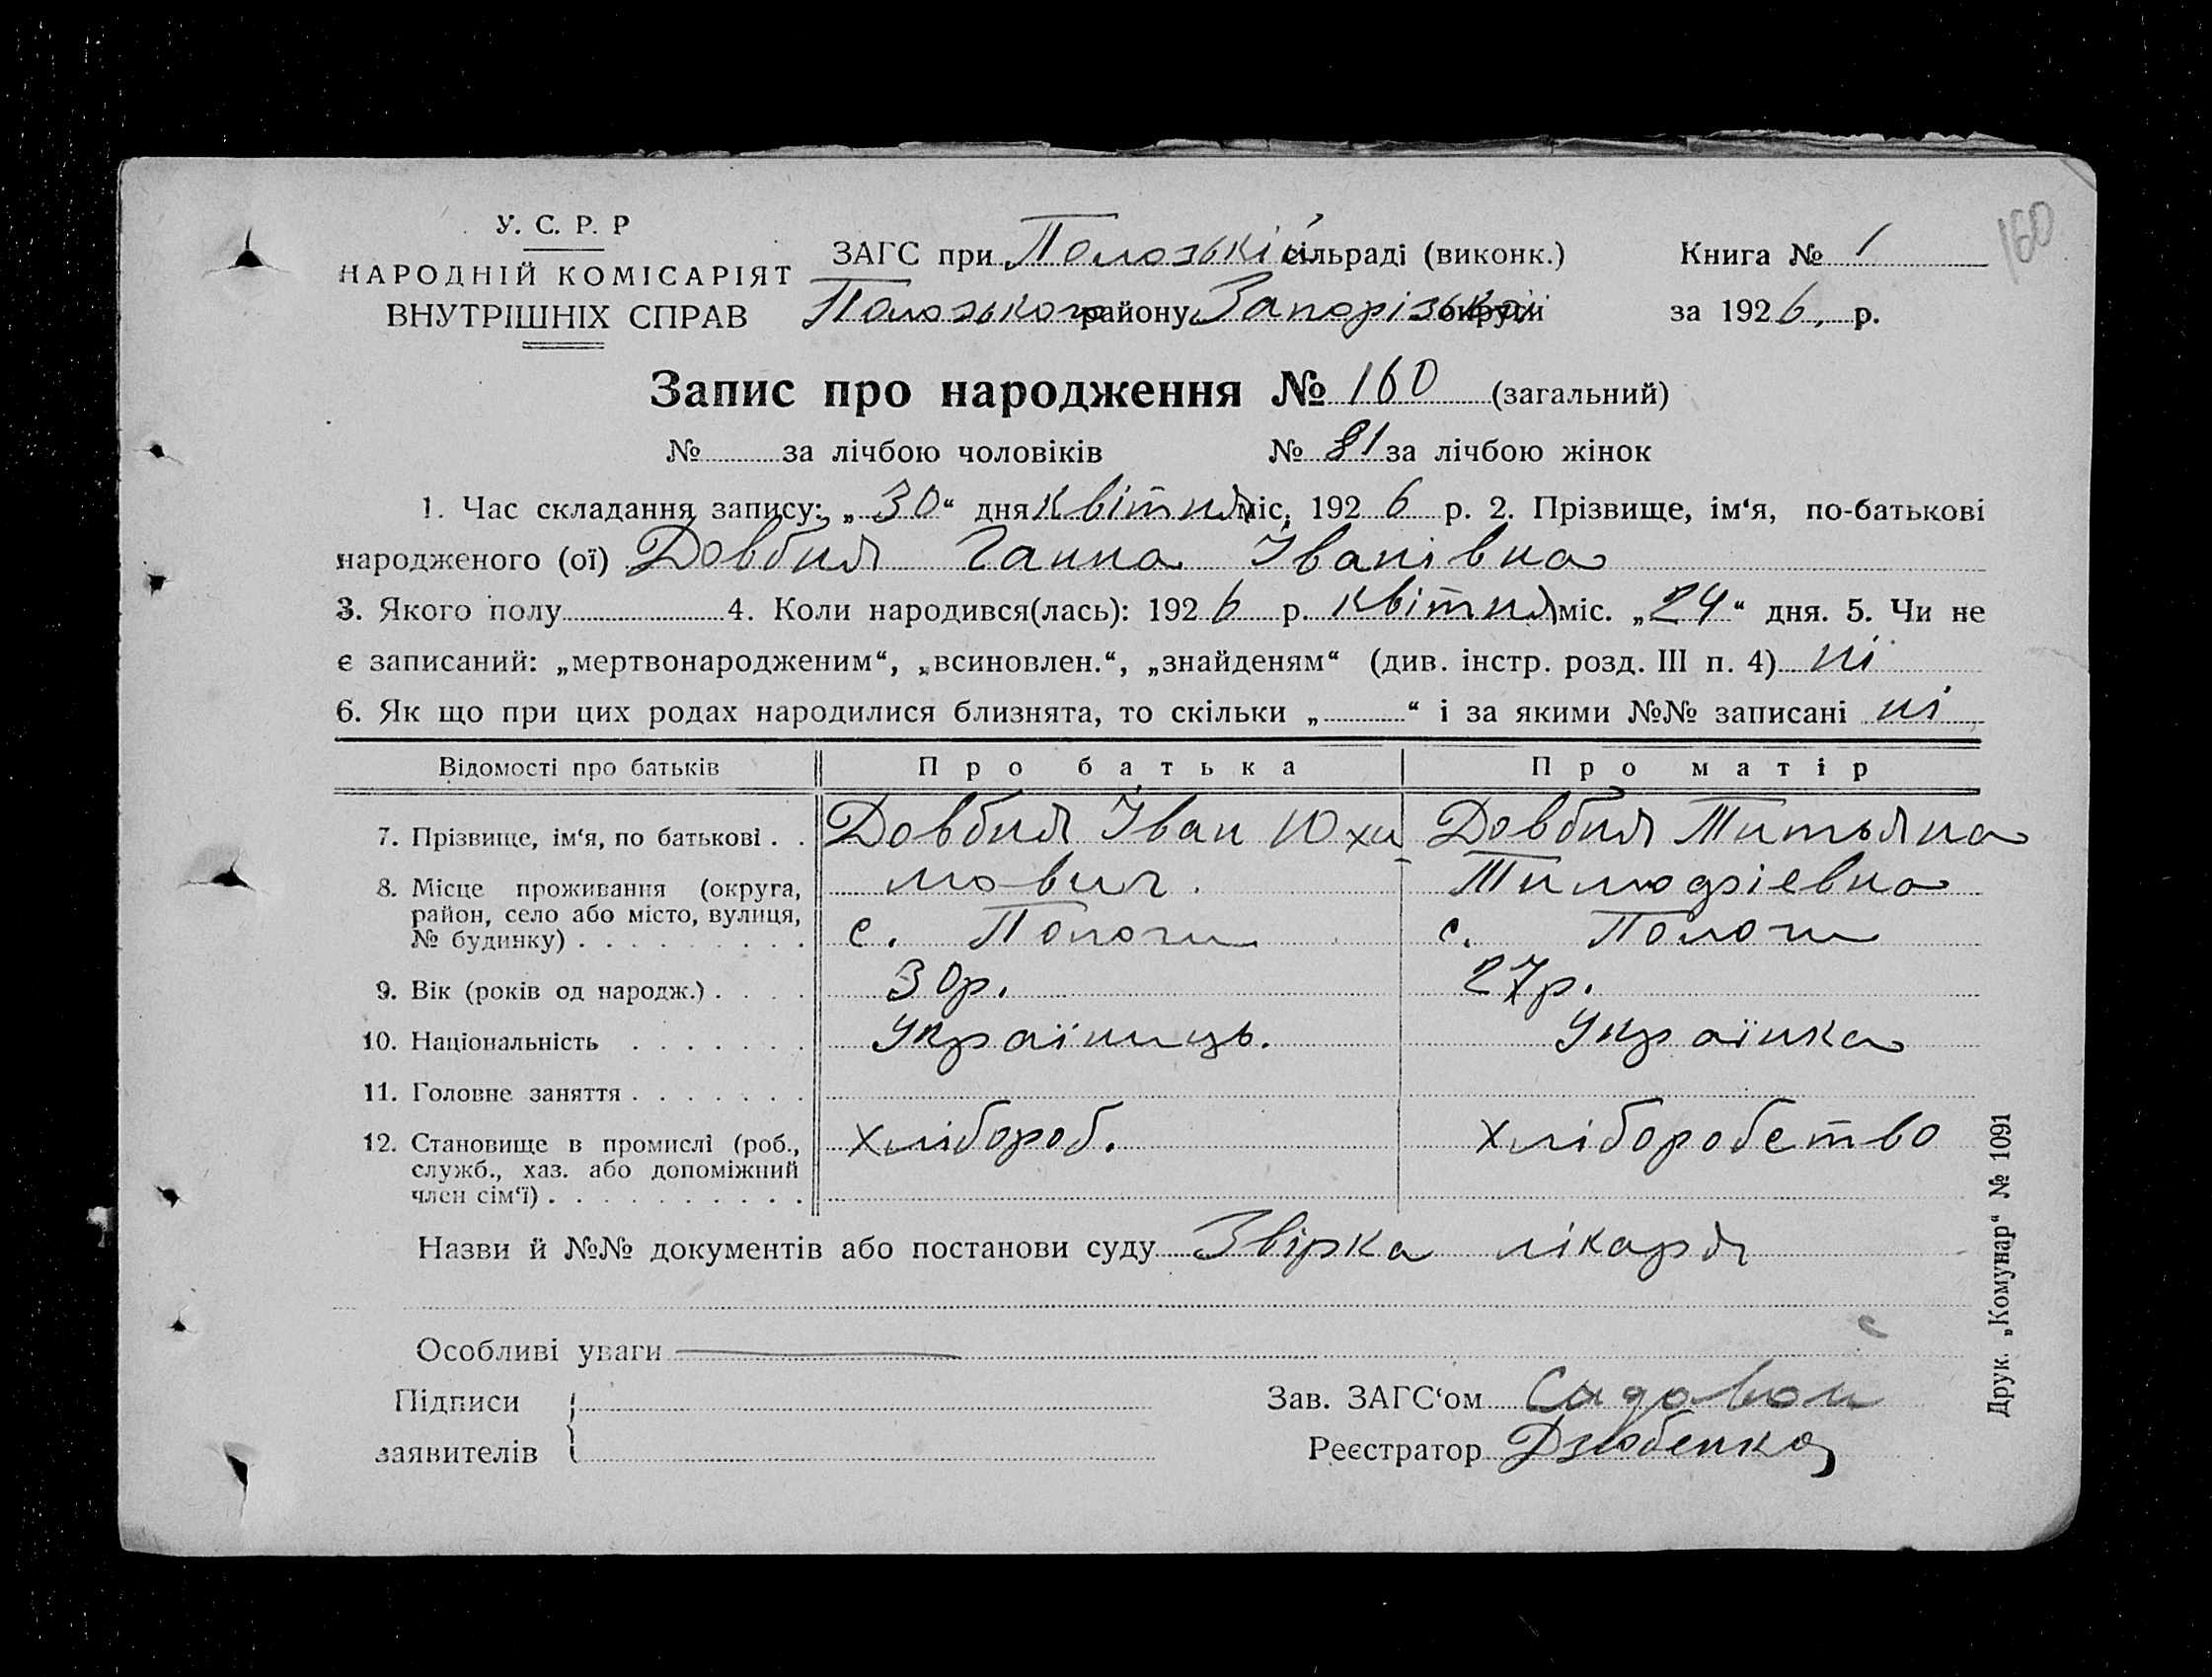 160
У. С. Р. Р
НАРОДНІЙ КОМІСАРІЯТ
ВНУТРІШНІХ СПРАВ
ЗАГС при Полозькій сільраді (виконк.)
Полозького району Запорізької округи
Книга № 1
за 1926, р.
Запис про народження № 160 (загальний)
№ за лічбою чоловіків № 81 за лічбою жінок
1. Час складання запису: „30“ дня квітня міс. 1926 р. 2. Прізвище, ім‘я, по-батькові
народженого (ої) Довбня Ганна Іванівна
3. Якого полу 4. Коли народився(лась): 1926 р. квітня міс. „24“ дня. 5. Чи не
є записаний: „мертвонародженим“, „всиновлен.“, „знайденям“ (див. інстр. розд. III п. 4) ні
6. Як що при цих родах народилися близнята, то скільки „ “ і за якими №№ записані ні
Відомості про батьків Про батька Про матір
7. Прізвище, ім‘я, по батькові . . Довбня Іван Юхи- Довбня Титьяна
мович. Тимофіевна
8. Місце проживання (округа,
район, село або місто, вулиця,
№ будинку) . . . . . . . . . с. Пологи с. Пологи
9. Вік (років од народж.) . . . . 30р. 27р.
10. Національність . . . . . . . Українець. Українка
11. Головне заняття . . . . . . .
12. Становище в промислі (роб., хлібороб. хліборобство
служб., хаз. або допоміжний
член сім‘ї) . . . . . . . . . .
Назви й №№ документів або постанови суду Звірка лікаря
Особливі уваги
Підписи
заявителів
Зав. ЗАГС‘ом Садовой
Реєстратор Дзюбенко
Друк. „Комунар“ № 1091